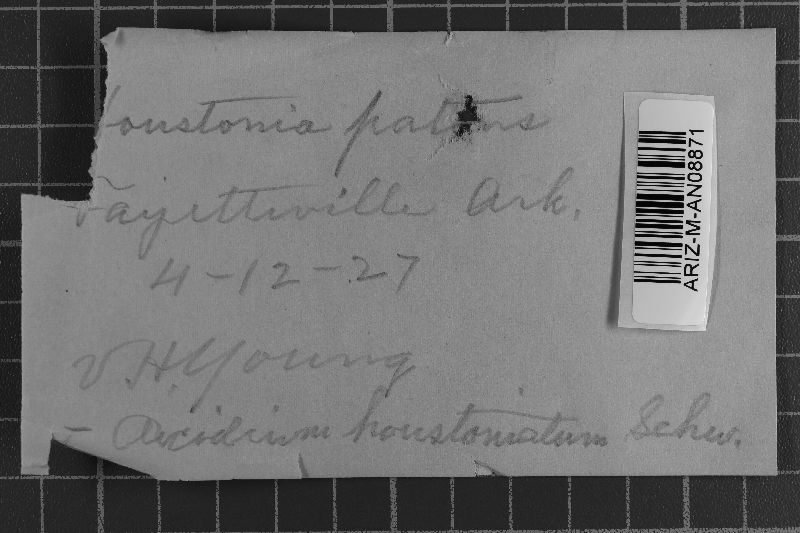 Houstonia patens
Fayetteville Ark.
4-12-27
V.H. Young
- Aecidium houstoniatum Schw.
ARIZ-M-AN08871